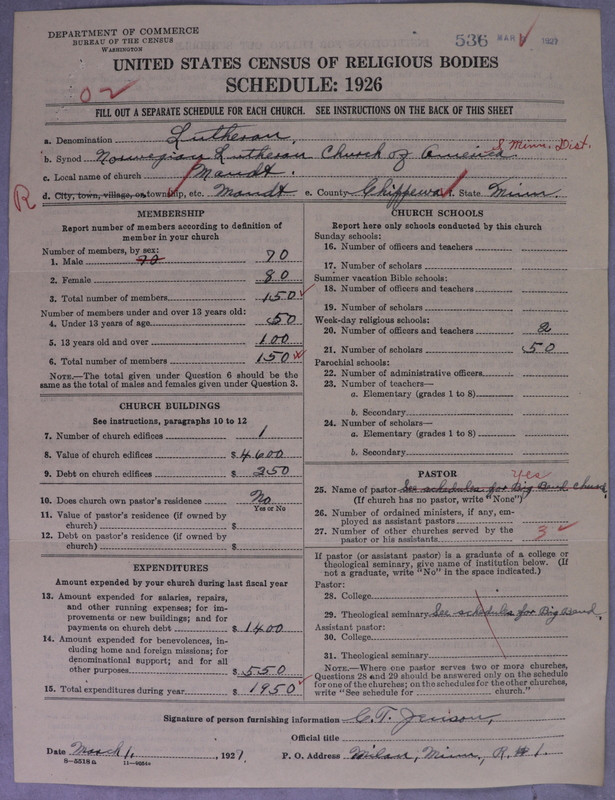 DEPARTMENT OF COMMERCE
BUREAU OF THE CENSUS
WASHINGTON
536 MAR 1927
UNITED STATES CENSUS OF RELIGIOUS BODIES
SCHEDULE: 1926
02
FILL OUT A SEPARATE SCHEDULE FOR EACH CHURCH. SEE INSTRUCTIONS ON THE BACK OF THIS SHEET
a. Denomination Lutheran.
b. Synod Norwegian Lutheran Church of America. S Minn. Dist.
c. Local name of church Mandt.
R
d. City, town, village, or township, etc. Mandt e. County Chippewa f. State Minn.
MEMBERSHIP
Report number of members according to definition of
member in your church
Number of members, by sex:
1. Male 70 70
2. Female 80
3. Total number of members 150
Number of members under and over 13 years old:
4. Under 13 years of age 50
5. 13 years old and over 100
6. Total number of members 150
NOTE.—The total given under Question 6 should be the
same as the total of males and females given under Question 3.
CHURCH BUILDINGS
See instructions, paragraphs 10 to 12
7. Number of church edifices 1
8. Value of church edifices $4600
9. Debt on church edifices $ 250
10. Does church own pastor's residence No
Yes or No
11. Value of pastor's residence (if owned by
church) $
12. Debt on pastor's residence (if owned by
church) $
EXPENDITURES
Amount expended by your church during last fiscal year
13. Amount expended for salaries, repairs,
and other running expenses; for im-
provements or new buildings; and for
payments on church debt $ 1400
14. Amount expended for benevolences, in-
cluding home and foreign missions; for
denominational support; and for all
other purposes $ 550
15. Total expenditures during year $ 1950
CHURCH SCHOOLS
Report here only schools conducted by this church
Sunday schools:
16. Number of officers and teachers
17. Number of scholars
Summer vacation Bible schools:
18. Number of officers and teachers
19. Number of scholars
Week-day religious schools:
20. Number of officers and teachers 2
21. Number of scholars 50
Parochial schools:
22. Number of administrative officers
23. Number of teachers—
a. Elementary (grades 1 to 8)
b. Secondary
24. Number of scholars—
a. Elementary (grades 1 to 8)
b. Secondary
PASTOR
yes
25. Name of pastor See schedules for Big Bend Church
(If church has no pastor, write "None")
26. Number of ordained ministers, if any, em-
ployed as assistant pastors
27. Number of other churches served by the
pastor or his assistants 3
If pastor (or assistant pastor) is a graduate of a college or
theological seminary, give name of institution below. (If
not a graduate, write "No" in the space indicated.)
Pastor:
28. College
29. Theological seminary See schedules for Big Bend
Assistant pastor:
30. College
31. Theological seminary
NOTE.—Where one pastor serves two or more churches,
Questions 28 and 29 should be answered only on the schedule
for one of the churches; on the schedules for the other churches,
write "See schedule for church."
Signature of person furnishing information C. T. Jenson,
Official title
Date March 1, 1927 P. O. Address Milan, Minn, R #1.
8-5518 a 11-9034